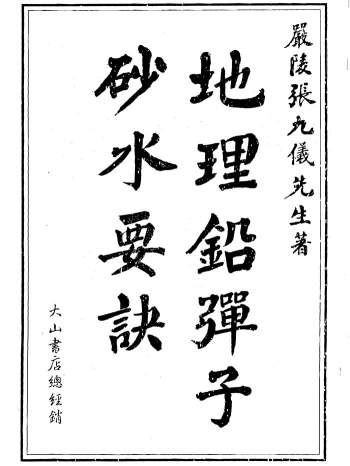 嚴陵張九儀先生著
地理鉛彈子
砂水要訣
大山書店總經銷